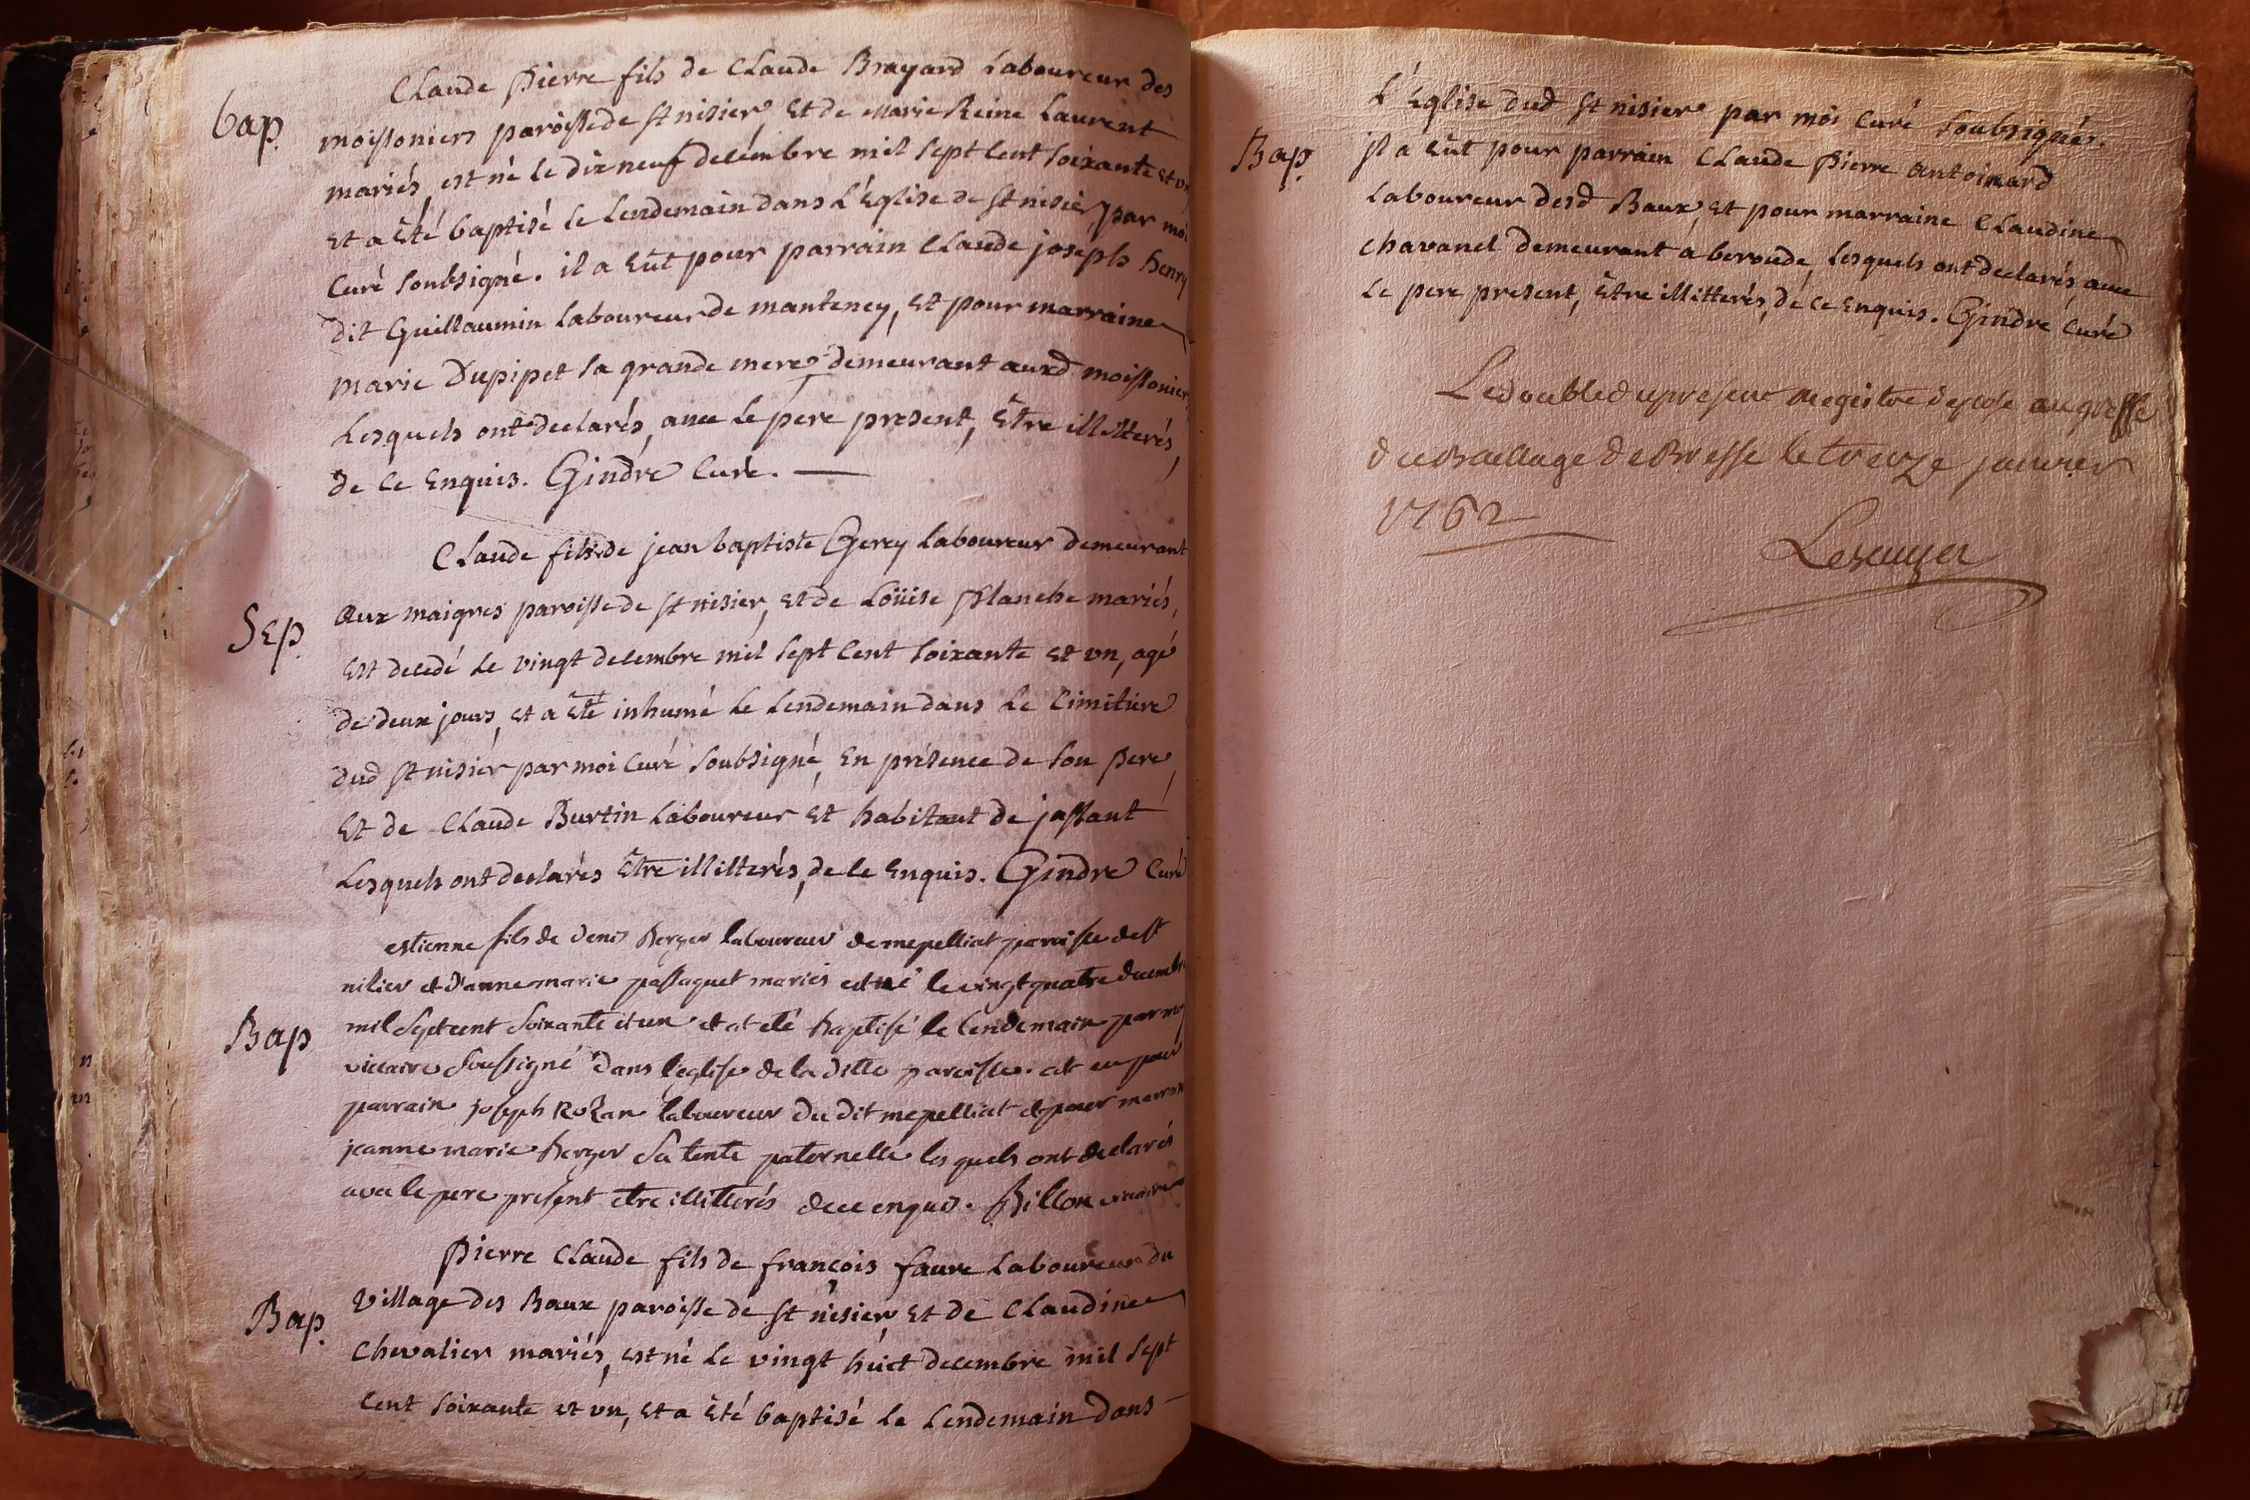 bap.
Claude Pierre fils de Claude Brayard Laboureur des
moissoniers paroisse de st nisier, Et de Marie Reine Laurent
mariés, est né le dix neuf decembre mil sept cent soixante et un
Et a Eté baptisé le lendemain dans L'Eglise de St nisier, par moi
Curé soubsigné. il a Eut pour parrain Claude joseph henry
dit Guillaumin Laboureur de manteney, Et pour marraine
Marie Dupipet sa grande mere, demeurant auxd moissoniers
Lesquels ont declarés, avec le pere present, Etre illitterés,
de ce Enquis. Gindre Curé.
Sep.
Claude fils de jean baptiste Gerey Laboureur demeurant
Aux maigres paroisse de st nisier, Et de Loüise Planche mariés,
Est decedé Le vingt decembre mil sept Cent soixante Et un, agé
de deux jours, Et a Eté inhumé Le Lendemain dans Le Cimitiere
dud st nisier par moi Curé soubsigné, En présence de son pere,
Et de Claude Burtin Laboureur Et habitant de jassant
Lesquels ont declarés Etre illitterés, de ce Enquis. Gindre Curé
Bap
estienne fils de denis Berger laboureur de mepelliat paroisse de st
nisier et d'anne marie passaquet mariés est né le vingt quatre decembre
mil sept cent soixante et un et at eté baptisé le lendemain par moy
viccaire soussigné dans l'eglise de la ditte paroisse. at eu pour
parrain joseph Rozan laboureur du dit mepelliat et pour marraine
jeanne marie Berger sa tente paternelle lesquels ont declarés
avec le pere present etre illitterés de ce enquis. Billon viccaire
Bap.
Pierre Claude fils de françois faure Laboureur du
village des Baux paroisse de st nisier, Et de Claudine
Chevalier mariés, est né Le vingt huict decembre mil sept
Cent soixante et un, Et a Eté baptisé Le Lendemain dans
Bap.
L'Eglise dud St nisier par moi Curé soubsigné.
jl a Eut pour parrain Claude Pierre antoinard
Laboureur desd Baux, Et pour marraine Claudine
chavanel demeurant a beroude, Lesquels ont declarés, avec
Le pere present, Etre illitterés, de ce Enquis. Gindre Curé
Le double du present Registre deposé au greffe
du Baillage de Bresse le treize janvier
1762
Lescuyer